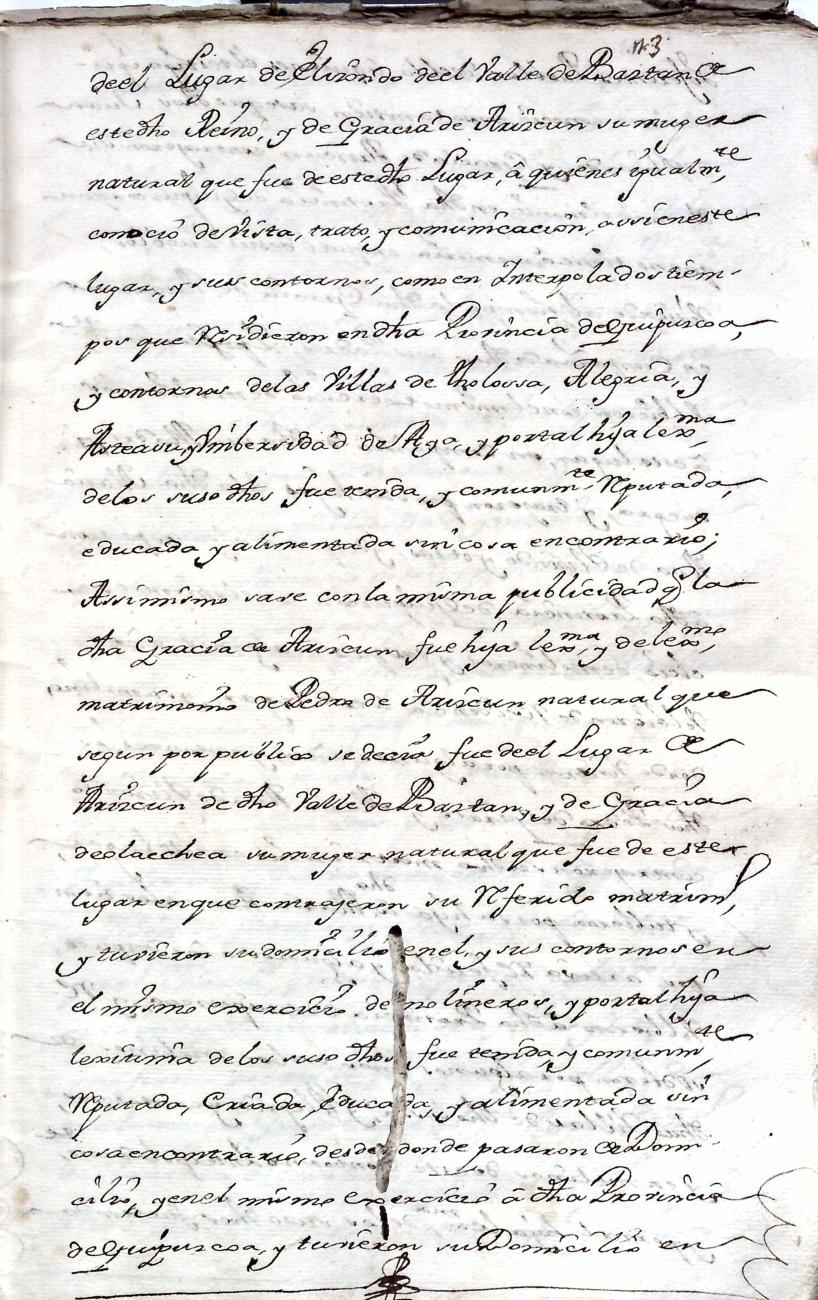 n.3
deel Lugar de Elisondo deel Valle de Bastan de
este dho Reino, y de Gracia de Ariscun su muger
natural que fue de este dho Lugar, â quienes igualm.te
conoció de vista, trato, y comunicacion, assi en este
lugar, y sus contornos, como en Interpolados tiem-
pos que Residieron en dha Provincia de Guipuscoa,
y contornos delas Villas de tholossa, Alegria, y
Asteasu, y Vnibersidad de Aya, y portal hija lex.ma
delos suso dhos fue tenida, y comunm.te Reputada,
educada y alimentada sin cosa encontrario;
Assimismo save conla misma publicidad q la
dha Gracia de Ariscun fue hija lex.ma y de lex.mo
matrimonio de Pedro de Ariscun natural que
segun por publico se decia fue deel Lugar de
Ariscun de dho Valle de Bastan, y de Gracia
de olaechea su muger natural que fue de este
lugar en que contrajeron su Referido matrim.l,
y tuvieron su domicilio enel, y sus contornos en
el mismo exercicio de molineros, y portal hija
lexitima de los suso dhos fue tenida, y comunm.te
Reputada, Criada, Educada, y alimentada sin
cosa encontrario, desde donde pasaron de Domi-
cilio, y enel mismo exercicio â dha Provincia
de Guipuscoa, y tuvieron su Domicilio en